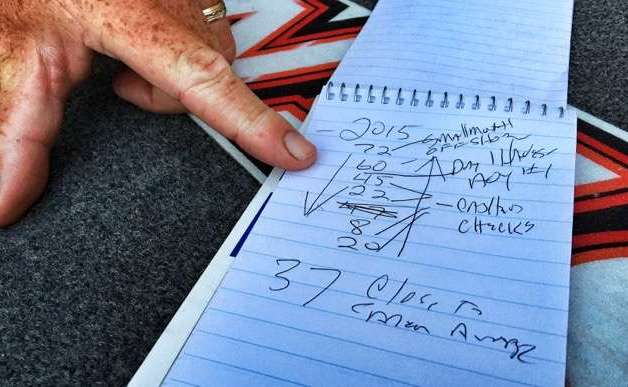 - 2015
72 - Smallmouth
60 offshore
45 Day 1 Leader
22 AOY #1
8 - Cashed
20 Checks
37 Close to
Career Average